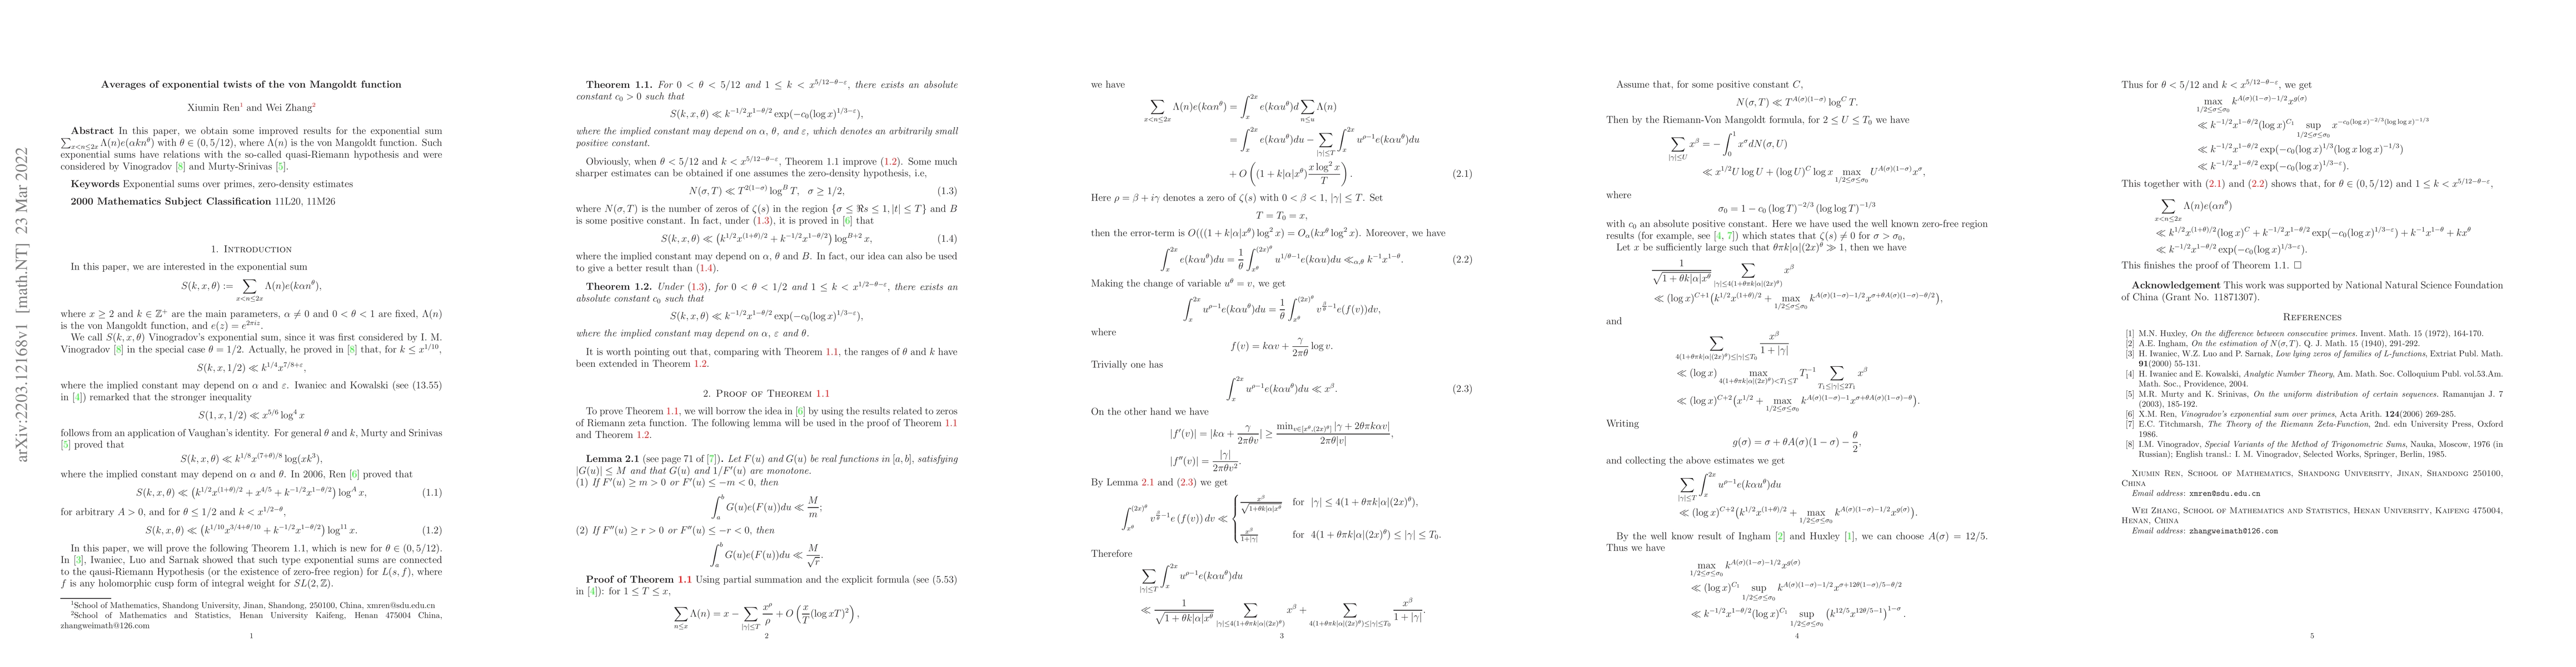 arXiv:2203.12168v1 [math.NT] 23 Mar 2022
Averages of exponential twists of the von Mangoldt function
Xiumin Ren¹ and Wei Zhang²
Abstract In this paper, we obtain some improved results for the exponential sum
∑_{x<n≤2x} Λ(n)e(αkn^θ) with θ ∈ (0, 5/12), where Λ(n) is the von Mangoldt function. Such
exponential sums have relations with the so-called quasi-Riemann hypothesis and were
considered by Vinogradov [8] and Murty-Srinivas [5].
Keywords Exponential sums over primes, zero-density estimates
2000 Mathematics Subject Classification 11L20, 11M26
1. Introduction
In this paper, we are interested in the exponential sum
S(k, x, θ) := ∑_{x<n≤2x} Λ(n)e(kαn^θ),
where x ≥ 2 and k ∈ Z⁺ are the main parameters, α ≠ 0 and 0 < θ < 1 are fixed, Λ(n)
is the von Mangoldt function, and e(z) = e^{2πiz}.
We call S(k, x, θ) Vinogradov's exponential sum, since it was first considered by I. M.
Vinogradov [8] in the special case θ = 1/2. Actually, he proved in [8] that, for k ≤ x^{1/10},
S(k, x, 1/2) ≪ k^{1/4}x^{7/8+ε},
where the implied constant may depend on α and ε. Iwaniec and Kowalski (see (13.55)
in [4]) remarked that the stronger inequality
S(1, x, 1/2) ≪ x^{5/6} log⁴ x
follows from an application of Vaughan's identity. For general θ and k, Murty and Srinivas
[5] proved that
S(k, x, θ) ≪ k^{1/8}x^{(7+θ)/8} log(xk³),
where the implied constant may depend on α and θ. In 2006, Ren [6] proved that
S(k, x, θ) ≪ (k^{1/2}x^{(1+θ)/2} + x^{4/5} + k^{-1/2}x^{1-θ/2}) log^A x, (1.1)
for arbitrary A > 0, and for θ ≤ 1/2 and k < x^{1/2-θ},
S(k, x, θ) ≪ (k^{1/10}x^{3/4+θ/10} + k^{-1/2}x^{1-θ/2}) log^{11} x. (1.2)
In this paper, we will prove the following Theorem 1.1, which is new for θ ∈ (0, 5/12).
In [3], Iwaniec, Luo and Sarnak showed that such type exponential sums are connected
to the qausi-Riemann Hypothesis (or the existence of zero-free region) for L(s, f), where
f is any holomorphic cusp form of integral weight for SL(2, Z).
¹School of Mathematics, Shandong University, Jinan, Shandong, 250100, China, xmren@sdu.edu.cn
²School of Mathematics and Statistics, Henan University Kaifeng, Henan 475004 China,
zhangweimath@126.com
1
Theorem 1.1. For 0 < θ < 5/12 and 1 ≤ k < x^{5/12-θ-ε}, there exists an absolute
constant c₀ > 0 such that
S(k, x, θ) ≪ k^{-1/2}x^{1-θ/2} exp(-c₀(log x)^{1/3-ε}),
where the implied constant may depend on α, θ, and ε, which denotes an arbitrarily small
positive constant.
Obviously, when θ < 5/12 and k < x^{5/12-θ-ε}, Theorem 1.1 improve (1.2). Some much
sharper estimates can be obtained if one assumes the zero-density hypothesis, i.e,
N(σ, T) ≪ T^{2(1-σ)} log^B T, σ ≥ 1/2, (1.3)
where N(σ, T) is the number of zeros of ζ(s) in the region {σ ≤ ℜs ≤ 1, |t| ≤ T} and B
is some positive constant. In fact, under (1.3), it is proved in [6] that
S(k, x, θ) ≪ (k^{1/2}x^{(1+θ)/2} + k^{-1/2}x^{1-θ/2}) log^{B+2} x, (1.4)
where the implied constant may depend on α, θ and B. In fact, our idea can also be used
to give a better result than (1.4).
Theorem 1.2. Under (1.3), for 0 < θ < 1/2 and 1 ≤ k < x^{1/2-θ-ε}, there exists an
absolute constant c₀ such that
S(k, x, θ) ≪ k^{-1/2}x^{1-θ/2} exp(-c₀(log x)^{1/3-ε}),
where the implied constant may depend on α, ε and θ.
It is worth pointing out that, comparing with Theorem 1.1, the ranges of θ and k have
been extended in Theorem 1.2.
2. Proof of Theorem 1.1
To prove Theorem 1.1, we will borrow the idea in [6] by using the results related to zeros
of Riemann zeta function. The following lemma will be used in the proof of Theorem 1.1
and Theorem 1.2.
Lemma 2.1 (see page 71 of [7]). Let F(u) and G(u) be real functions in [a, b], satisfying
|G(u)| ≤ M and that G(u) and 1/F′(u) are monotone.
(1) If F′(u) ≥ m > 0 or F′(u) ≤ -m < 0, then
∫_a^b G(u)e(F(u))du ≪ M/m;
(2) If F″(u) ≥ r > 0 or F″(u) ≤ -r < 0, then
∫_a^b G(u)e(F(u))du ≪ M/√r.
Proof of Theorem 1.1 Using partial summation and the explicit formula (see (5.53)
in [4]): for 1 ≤ T ≤ x,
∑_{n≤x} Λ(n) = x - ∑_{|γ|≤T} x^ρ/ρ + O(x/T (log xT)²),
2
we have
∑_{x<n≤2x} Λ(n)e(kαn^θ) = ∫_x^{2x} e(kαu^θ)d∑_{n≤u} Λ(n)
= ∫_x^{2x} e(kαu^θ)du - ∑_{|γ|≤T} ∫_x^{2x} u^{ρ-1}e(kαu^θ)du
+ O((1 + k|α|x^θ) x log² x / T). (2.1)
Here ρ = β + iγ denotes a zero of ζ(s) with 0 < β < 1, |γ| ≤ T. Set
T = T₀ = x,
then the error-term is O(((1 + k|α|x^θ) log² x) = O_α(kx^θ log² x). Moreover, we have
∫_x^{2x} e(kαu^θ)du = 1/θ ∫_{x^θ}^{(2x)^θ} u^{1/θ-1}e(kαu)du ≪_{α,θ} k^{-1}x^{1-θ}. (2.2)
Making the change of variable u^θ = v, we get
∫_x^{2x} u^{ρ-1}e(kαu^θ)du = 1/θ ∫_{x^θ}^{(2x)^θ} v^{β/θ-1}e(f(v))dv,
where
f(v) = kαv + γ/(2πθ) log v.
Trivially one has
∫_x^{2x} u^{ρ-1}e(kαu^θ)du ≪ x^β. (2.3)
On the other hand we have
|f′(v)| = |kα + γ/(2πθv)| ≥ min_{v∈[x^θ,(2x)^θ]} |γ + 2θπkαv| / (2πθ|v|),
|f″(v)| = |γ|/(2πθv²).
By Lemma 2.1 and (2.3) we get
∫_{x^θ}^{(2x)^θ} v^{β/θ-1}e (f(v)) dv ≪ { x^β/√(1+θk|α|x^θ) for |γ| ≤ 4(1 + θπk|α|(2x)^θ),
x^β/(1+|γ|) for 4(1 + θπk|α|(2x)^θ) ≤ |γ| ≤ T.
Therefore
∑_{|γ|≤T} ∫_x^{2x} u^{ρ-1}e(kαu^θ)du
≪ 1/√(1 + θk|α|x^θ) ∑_{|γ|≤4(1+θπk|α|(2x)^θ)} x^β + ∑_{4(1+θπk|α|(2x)^θ)≤|γ|≤T₀} x^β/(1 + |γ|).
3
Assume that, for some positive constant C,
N(σ, T) ≪ T^{A(σ)(1-σ)} log^C T.
Then by the Riemann-Von Mangoldt formula, for 2 ≤ U ≤ T₀ we have
∑_{|γ|≤U} x^β = -∫_0^1 x^σ dN(σ, U)
≪ x^{1/2}U log U + (log U)^C log x max_{1/2≤σ≤σ₀} U^{A(σ)(1-σ)}x^σ,
where
σ₀ = 1 - c₀ (log T)^{-2/3} (log log T)^{-1/3}
with c₀ an absolute positive constant. Here we have used the well known zero-free region
results (for example, see [4, 7]) which states that ζ(s) ≠ 0 for σ > σ₀.
Let x be sufficiently large such that θπk|α|(2x)^θ ≫ 1, then we have
1/√(1 + θk|α|x^θ) ∑_{|γ|≤4(1+θπk|α|(2x)^θ)} x^β
≪ (log x)^{C+1}(k^{1/2}x^{(1+θ)/2} + max_{1/2≤σ≤σ₀} k^{A(σ)(1-σ)-1/2}x^{σ+θA(σ)(1-σ)-θ/2}),
and
∑_{4(1+θπk|α|(2x)^θ)≤|γ|≤T₀} x^β/(1 + |γ|)
≪ (log x) max_{4(1+θπk|α|(2x)^θ)<T₁≤T} T₁^{-1} ∑_{T₁≤|γ|≤2T₁} x^β
≪ (log x)^{C+2}(x^{1/2} + max_{1/2≤σ≤σ₀} k^{A(σ)(1-σ)-1}x^{σ+θA(σ)(1-σ)-θ}).
Writing
g(σ) = σ + θA(σ)(1 - σ) - θ/2,
and collecting the above estimates we get
∑_{|γ|≤T} ∫_x^{2x} u^{ρ-1}e(kαu^θ)du
≪ (log x)^{C+2}(k^{1/2}x^{(1+θ)/2} + max_{1/2≤σ≤σ₀} k^{A(σ)(1-σ)-1/2}x^{g(σ)}).
By the well know result of Ingham [2] and Huxley [1], we can choose A(σ) = 12/5.
Thus we have
max_{1/2≤σ≤σ₀} k^{A(σ)(1-σ)-1/2}x^{g(σ)}
≪ (log x)^{C₁} sup_{1/2≤σ≤σ₀} k^{A(σ)(1-σ)-1/2}x^{σ+12θ(1-σ)/5-θ/2}
≪ k^{-1/2}x^{1-θ/2}(log x)^{C₁} sup_{1/2≤σ≤σ₀} (k^{12/5}x^{12θ/5-1})^{1-σ}.
4
Thus for θ < 5/12 and k < x^{5/12-θ-ε}, we get
max_{1/2≤σ≤σ₀} k^{A(σ)(1-σ)-1/2}x^{g(σ)}
≪ k^{-1/2}x^{1-θ/2}(log x)^{C₁} sup_{1/2≤σ≤σ₀} x^{-c₀(log x)^{-2/3}(log log x)^{-1/3}}
≪ k^{-1/2}x^{1-θ/2} exp(-c₀(log x)^{1/3}(log x log x)^{-1/3})
≪ k^{-1/2}x^{1-θ/2} exp(-c₀(log x)^{1/3-ε}).
This together with (2.1) and (2.2) shows that, for θ ∈ (0, 5/12) and 1 ≤ k < x^{5/12-θ-ε},
∑_{x<n≤2x} Λ(n)e(αn^θ)
≪ k^{1/2}x^{(1+θ)/2}(log x)^C + k^{-1/2}x^{1-θ/2} exp(-c₀(log x)^{1/3-ε}) + k^{-1}x^{1-θ} + kx^θ
≪ k^{-1/2}x^{1-θ/2} exp(-c₀(log x)^{1/3-ε}).
This finishes the proof of Theorem 1.1. □
Acknowledgement This work was supported by National Natural Science Foundation
of China (Grant No. 11871307).
References
[1] M.N. Huxley, On the difference between consecutive primes. Invent. Math. 15 (1972), 164-170.
[2] A.E. Ingham, On the estimation of N(σ, T). Q. J. Math. 15 (1940), 291-292.
[3] H. Iwaniec, W.Z. Luo and P. Sarnak, Low lying zeros of families of L-functions, Extriat Publ. Math.
91(2000) 55-131.
[4] H. Iwaniec and E. Kowalski, Analytic Number Theory, Am. Math. Soc. Colloquium Publ. vol.53.Am.
Math. Soc., Providence, 2004.
[5] M.R. Murty and K. Srinivas, On the uniform distribution of certain sequences. Ramanujan J. 7
(2003), 185-192.
[6] X.M. Ren, Vinogradov's exponential sum over primes, Acta Arith. 124(2006) 269-285.
[7] E.C. Titchmarsh, The Theory of the Riemann Zeta-Function, 2nd. edn University Press, Oxford
1986.
[8] I.M. Vinogradov, Special Variants of the Method of Trigonometric Sums, Nauka, Moscow, 1976 (in
Russian); English transl.: I. M. Vinogradov, Selected Works, Springer, Berlin, 1985.
Xiumin Ren, School of Mathematics, Shandong University, Jinan, Shandong 250100,
China
Email address: xmren@sdu.edu.cn
Wei Zhang, School of Mathematics and Statistics, Henan University, Kaifeng 475004,
Henan, China
Email address: zhangweimath@126.com
5